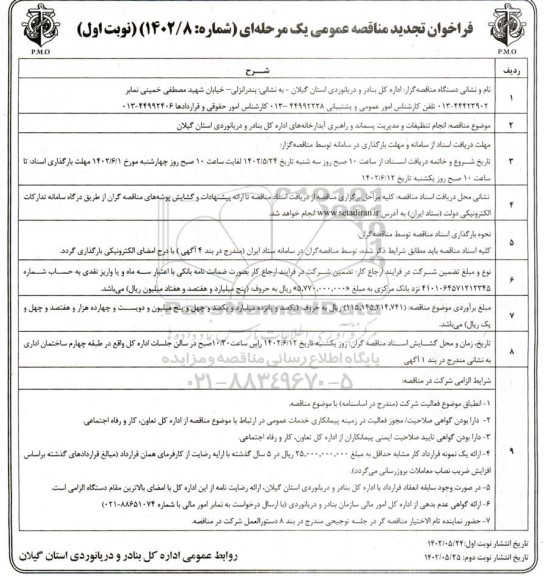 فراخوان تجدید مناقصه عمومی یک مرحله‌ای (شماره: ۱۴۰۲/۸) (نوبت اول)
P.M.O
P.M.O
ردیف
شرح
۱
نام و نشانی دستگاه مناقصه‌گزار: اداره کل بنادر و دریانوردی استان گیلان - به نشانی: بندرانزلی- خیابان شهید مصطفی خمینی نمابر
۰۱۳-۴۴۴۲۳۹۰۲ تلفن کارشناس امور عمومی و پشتیبانی ۴۴۹۹۲۲۲۸-۰۱۳ کارشناس امور حقوقی و قراردادها ۴۴۹۹۲۴۰۶-۰۱۳
۲
موضوع مناقصه: انجام تنظیفات و مدیریت پسماند و راهبری آبدارخانه‌های اداره کل بنادر و دریانوردی استان گیلان
۳
مهلت دریافت اسناد از سامانه و مهلت بارگذاری در سامانه توسط مناقصه‌گزار:
تاریخ شروع و خاتمه دریافت اسناد: از ساعت ۱۰ صبح روز سه شنبه تاریخ ۱۴۰۲/۵/۲۴ لغایت ساعت ۱۰ صبح روز چهارشنبه مورخ ۱۴۰۲/۶/۱ مهلت بارگذاری اسناد: تا
ساعت ۱۰ صبح روز یکشنبه تاریخ ۱۴۰۲/۶/۱۲
۴
نشانی محل دریافت اسناد مناقصه: کلیه مراحل برگزاری مناقصه از دریافت اسناد مناقصه تا ارائه پیشنهادات و گشایش پوشه‌های مناقصه گران از طریق درگاه سامانه تدارکات
الکترونیکی دولت (ستاد ایران) به آدرس www.setadiran.ir انجام خواهد شد.
۵
نحوه بارگذاری اسناد مناقصه توسط مناقصه‌گران:
کلیه اسناد مناقصه باید مطابق شرایط ذکر شده، توسط مناقصه‌گران در سامانه ستاد ایران (مندرج در بند ۴ آگهی) با درج امضای الکترونیکی بارگذاری گردد.
۶
نوع و مبلغ تضمین شرکت در فرایند ارجاع کار: تضمین شرکت در فرایند ارجاع کار بصورت ضمانت نامه بانکی با اعتبار سه ماه و یا واریز نقدی به حساب شماره
۴۱۰۱۰۶۴۵۷۱۲۱۲۳۴۵ نزد بانک مرکزی به مبلغ «۵٫۷۷۰٫۰۰۰٫۰۰۰» ریال به حروف (پنج میلیارد و هفتصد و هفتاد میلیون ریال) می‌باشد.
۷
مبلغ برآوردی موضوع مناقصه: (۱۱۵٫۱۴۵٫۲۱۴٫۷۴۱) ریال به حروف (یکصد و پانزده میلیارد و یکصد و چهل و پنج میلیون و دویست و چهارده هزار و هفتصد و چهل و
یک ریال) می‌باشد.
۸
تاریخ، زمان و محل گشایش اسناد مناقصه گران: روز یکشنبه تاریخ ۱۴۰۲/۶/۱۲ راس ساعت ۱۰:۳۰ صبح در سالن جلسات اداره کل واقع در طبقه چهارم ساختمان اداری
به نشانی مندرج در بند ۱ آگهی
۹
شرایط الزامی شرکت در مناقصه:
۱- انطباق موضوع فعالیت شرکت (مندرج در اساسنامه) با موضوع مناقصه.
۲- دارا بودن گواهی صلاحیت/ مجوز فعالیت در زمینه پیمانکاری خدمات عمومی در ارتباط با موضوع مناقصه از اداره کل تعاون، کار و رفاه اجتماعی.
۳- دارا بودن گواهی تایید صلاحیت ایمنی پیمانکاران از اداره کل تعاون، کار و رفاه اجتماعی.
۴- ارائه یک نمونه قرارداد کار مشابه حداقل به مبلغ ۲۵٫۰۰۰٫۰۰۰٫۰۰۰ ریال در ۵ سال گذشته با ارایه رضایت از کارفرمای همان قرارداد (مبالغ قراردادهای گذشته براساس
افزایش ضریب نصاب معاملات بروزرسانی می‌گردد).
۵- در صورت وجود سابقه انعقاد قرارداد با اداره کل بنادر و دریانوردی استان گیلان، ارائه رضایت نامه از این اداره کل با امضای بالاترین مقام دستگاه الزامی است.
۶- ارائه گواهی عدم بدهی از اداره کل امور مالی سازمان بنادر و دریانوردی (با ارسال درخواست به نمابر امور مالی با شماره ۸۸۶۵۱۰۷۴-۰۲۱)
۷- حضور نماینده تام الاختیار مناقصه گر در جلسه توجیهی مندرج در بند ۸ دستورالعمل شرکت در مناقصه.
تاریخ انتشار نوبت اول: ۱۴۰۲/۰۵/۲۴
تاریخ انتشار نوبت دوم: ۱۴۰۲/۰۵/۲۵
روابط عمومی اداره کل بنادر و دریانوردی استان گیلان
پایگاه اطلاع رسانی مناقصه و مزایده
۰۲۱-۸۸۳۴۹۶۷۰-۵